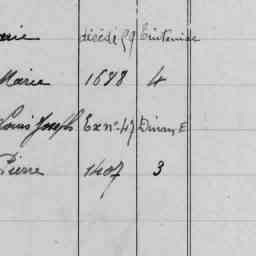 arie décédé 99 Tinteniac
Marie 1698 4
Louis Joseph Ex n° 47 Dinan E
Pierre 1407 3